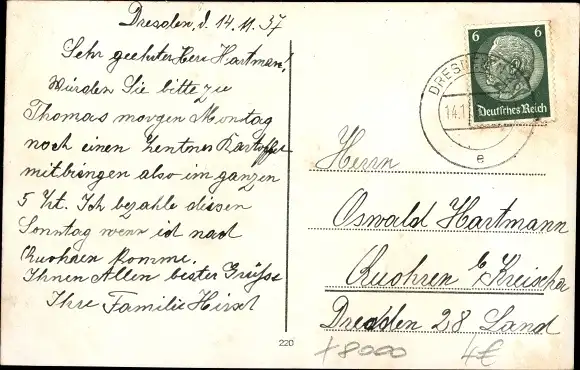 Dresden, d. 14.11.37
Sehr geehrter Herr Hartman!
Würden Sie bitte zu
Thomas morgen Montag
noch einen Zentner Kartoffel
mitbringen also im ganzen
5 Zt. Ich bezahle diesen
Sonntag wenn ich nach
Quohren komme.
Ihnen Allen bester Grüsse
Ihre Familie Hirsch
6 6
Deutsches Reich
DRESDEN
14.1
e
Herrn
Oswald Hartmann
Quohren b/Kreischa
Dresden 28 Land
220
+8000 4€